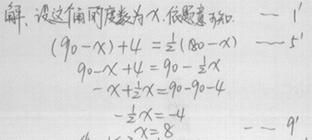 解,设这个角的度数为x.依题意可知. — 1'
(90-x)+4 = 1/2(180-x) — 5'
90-x+4 = 90-1/2x
-x+1/2x=90-90-4
-1/2x=-4
x=8 -- 9'